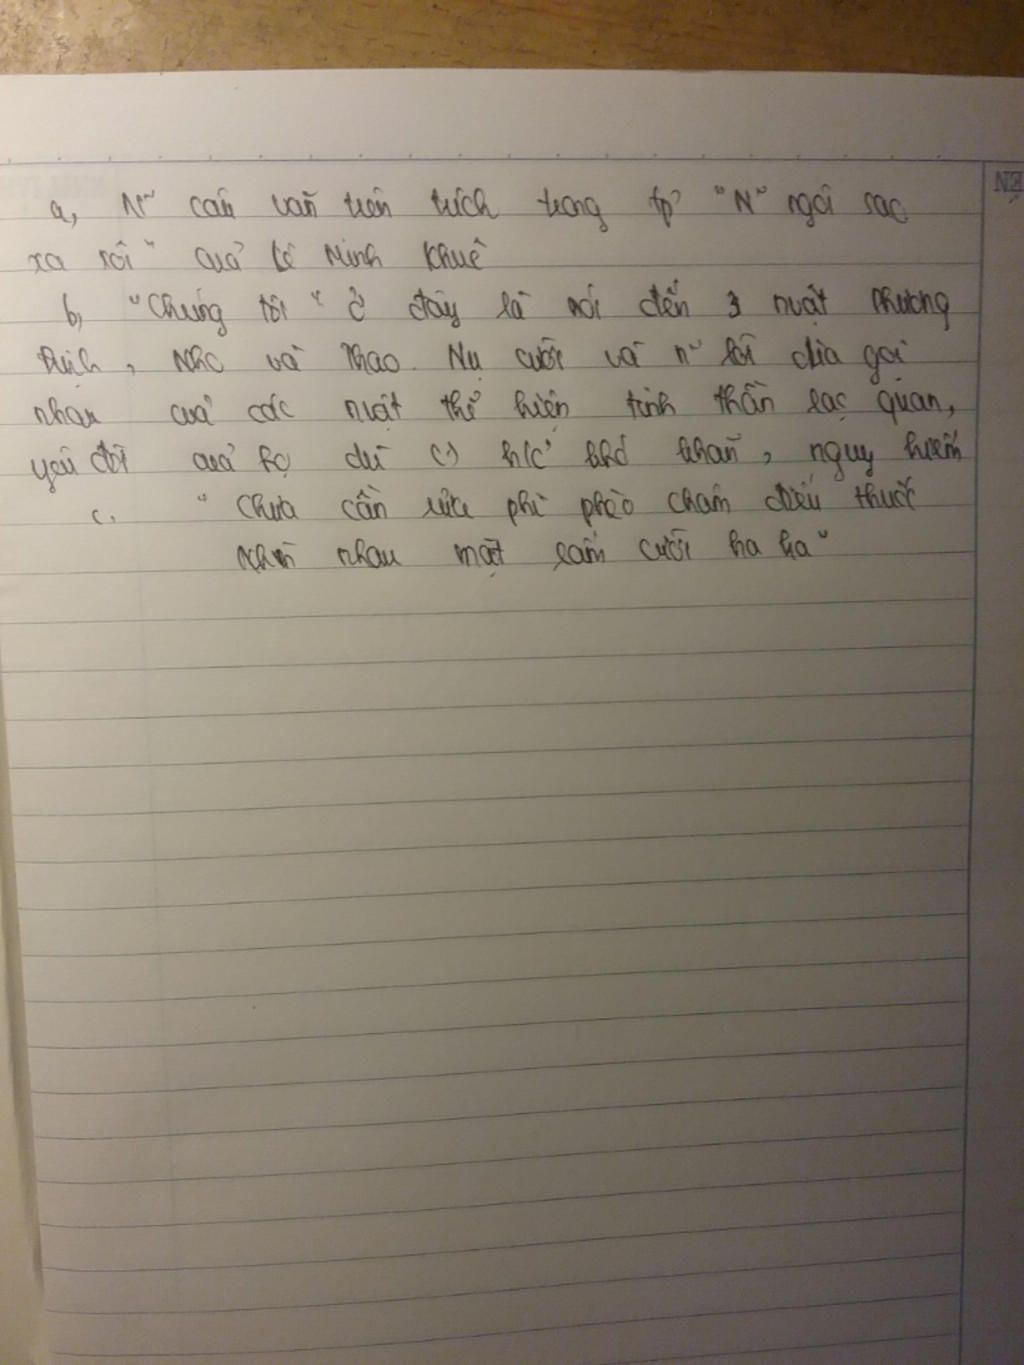 a, N~ câu văn trên trích trong tp' "N~ ngôi sao
xa xôi" của Lê Minh Khuê
b, "Chúng tôi" ở đây là nói đến 3 n.vật Phương
Định, Nho và Thao. Nụ cười và n~ lời đùa gọi
nhau của các n.vật thể hiện tinh thần lạc quan,
yêu đời của họ dù h/c' khó khăn, nguy hiểm
c. "Chưa cần rửa phì phèo châm điếu thuốc
Nhìn nhau mặt lấm cười ha ha"